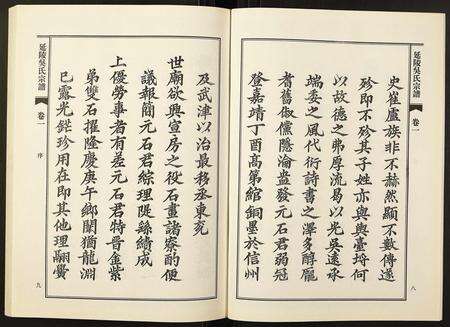 延陵吳氏宗譜
卷一
八
史崔盧族非不赫然顯不數傳遂
殄即不殄其子姓亦與輿臺埒何
以故德之弗厚流易以光吳遠承
端委之風代衍詩書之澤多醇龎
耆舊俶儻隱淪葢發元石君弱冠
登嘉靖丁酉高第綰銅墨於信州
及武津以治最移丞東兖
世廟欲興宣房之役石畫諸寮酌便
議報簡元石君綜理隄繇績成
上優勞事者有差元石君特晉金紫
弟雙石擢隆慶庚午鄉闈猶龍淵
已露光鋩珍用在即其他理翮黌
延陵吳氏宗譜
卷一
序
九